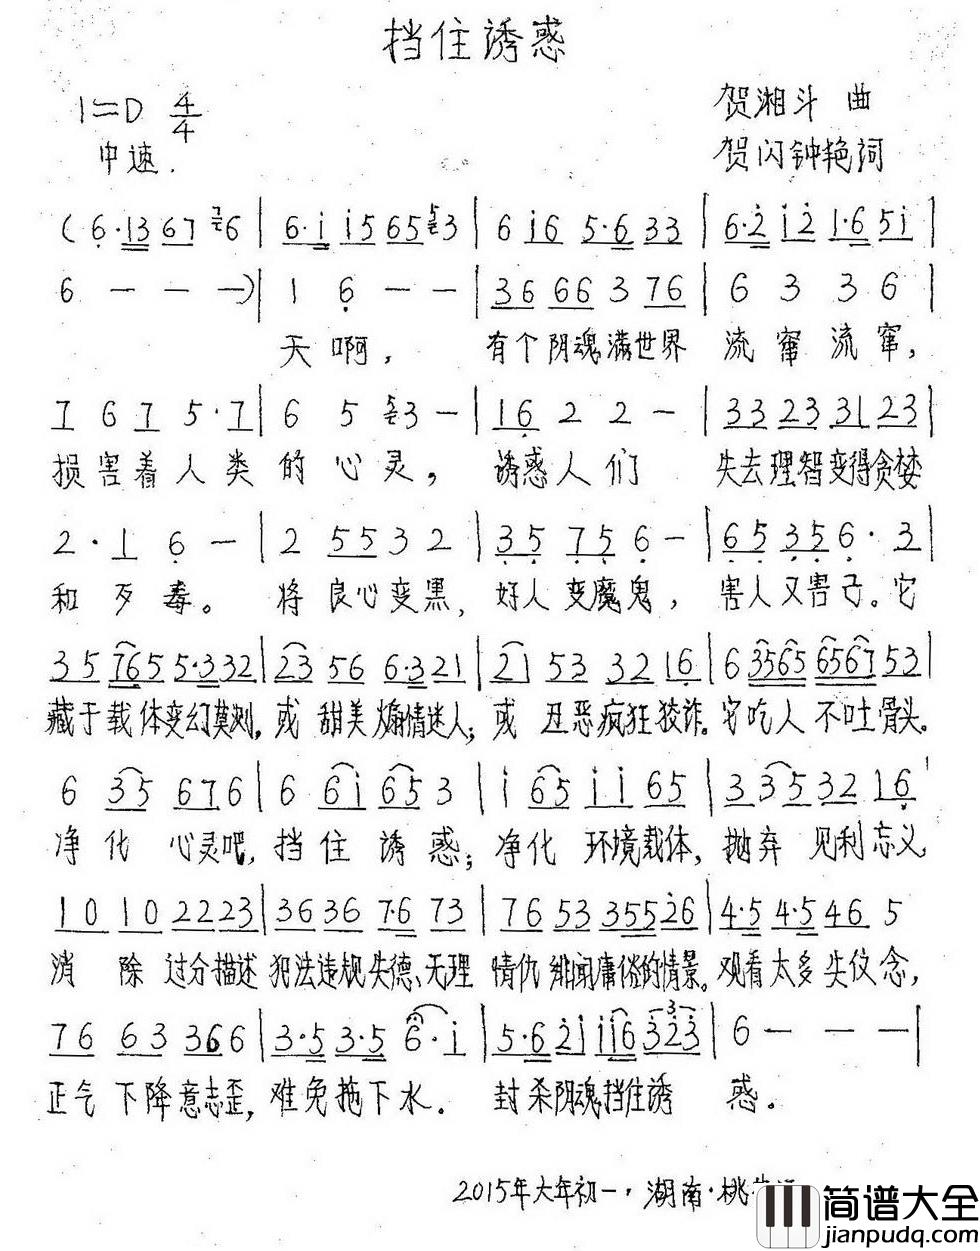 挡住诱惑
1=D 4/4
贺湘斗 曲
中速.
贺闪钟艳词
(6·13 67 7 6 | 6·i i5 65 5 3 | 6 i6 5·6 33 | 6·2 i2 1·6 5i |
6 — — —)| 1 6 — — | 36 66 3 76 | 6 3 3 6 |
天啊, 有个阴魂满世界 流窜流窜,
7 6 7 5·7 | 6 5 5 3 — | 16 2 2 — | 33 23 31 23 |
损害着人类 的心灵, 诱惑人们 失去理智变得贪婪
2·1 6 — | 2 55 3 2 | 35 75 6 — | 65 35 6·3 |
和歹毒。 将良心变黑, 好人变魔鬼, 害人又害己。它
35 765 5·3 32 | 23 56 6·3 21 | 21 53 32 16 | 6 3565 6567 53 |
藏于载体变幻莫测, 或甜美煽情迷人; 或丑恶疯狂狡诈。它吃人不吐骨头.
6 35 676 | 6 6i 65 3 | i 65 ii 65 | 3 35 32 16 '
净化心灵吧, 挡住诱惑; 净化环境载体, 抛弃见利忘义
10 10 22 23 | 36 36 7·6 73 | 76 53 355 26 | 4·5 4·5 46 5
消除过分描述 犯法违规失德、无理 情仇绯闻庸俗的情景。观看太多失仪念,
76 63 366 | 3·5 3·5 6·i | 5·6 2i ii6 323 | 6 — — — |
3
正气下降意志歪, 难免拖下水. 封杀阴魂挡住诱惑。
2015年大年初一, 湖南·桃
简谱大全
jianpudq.com